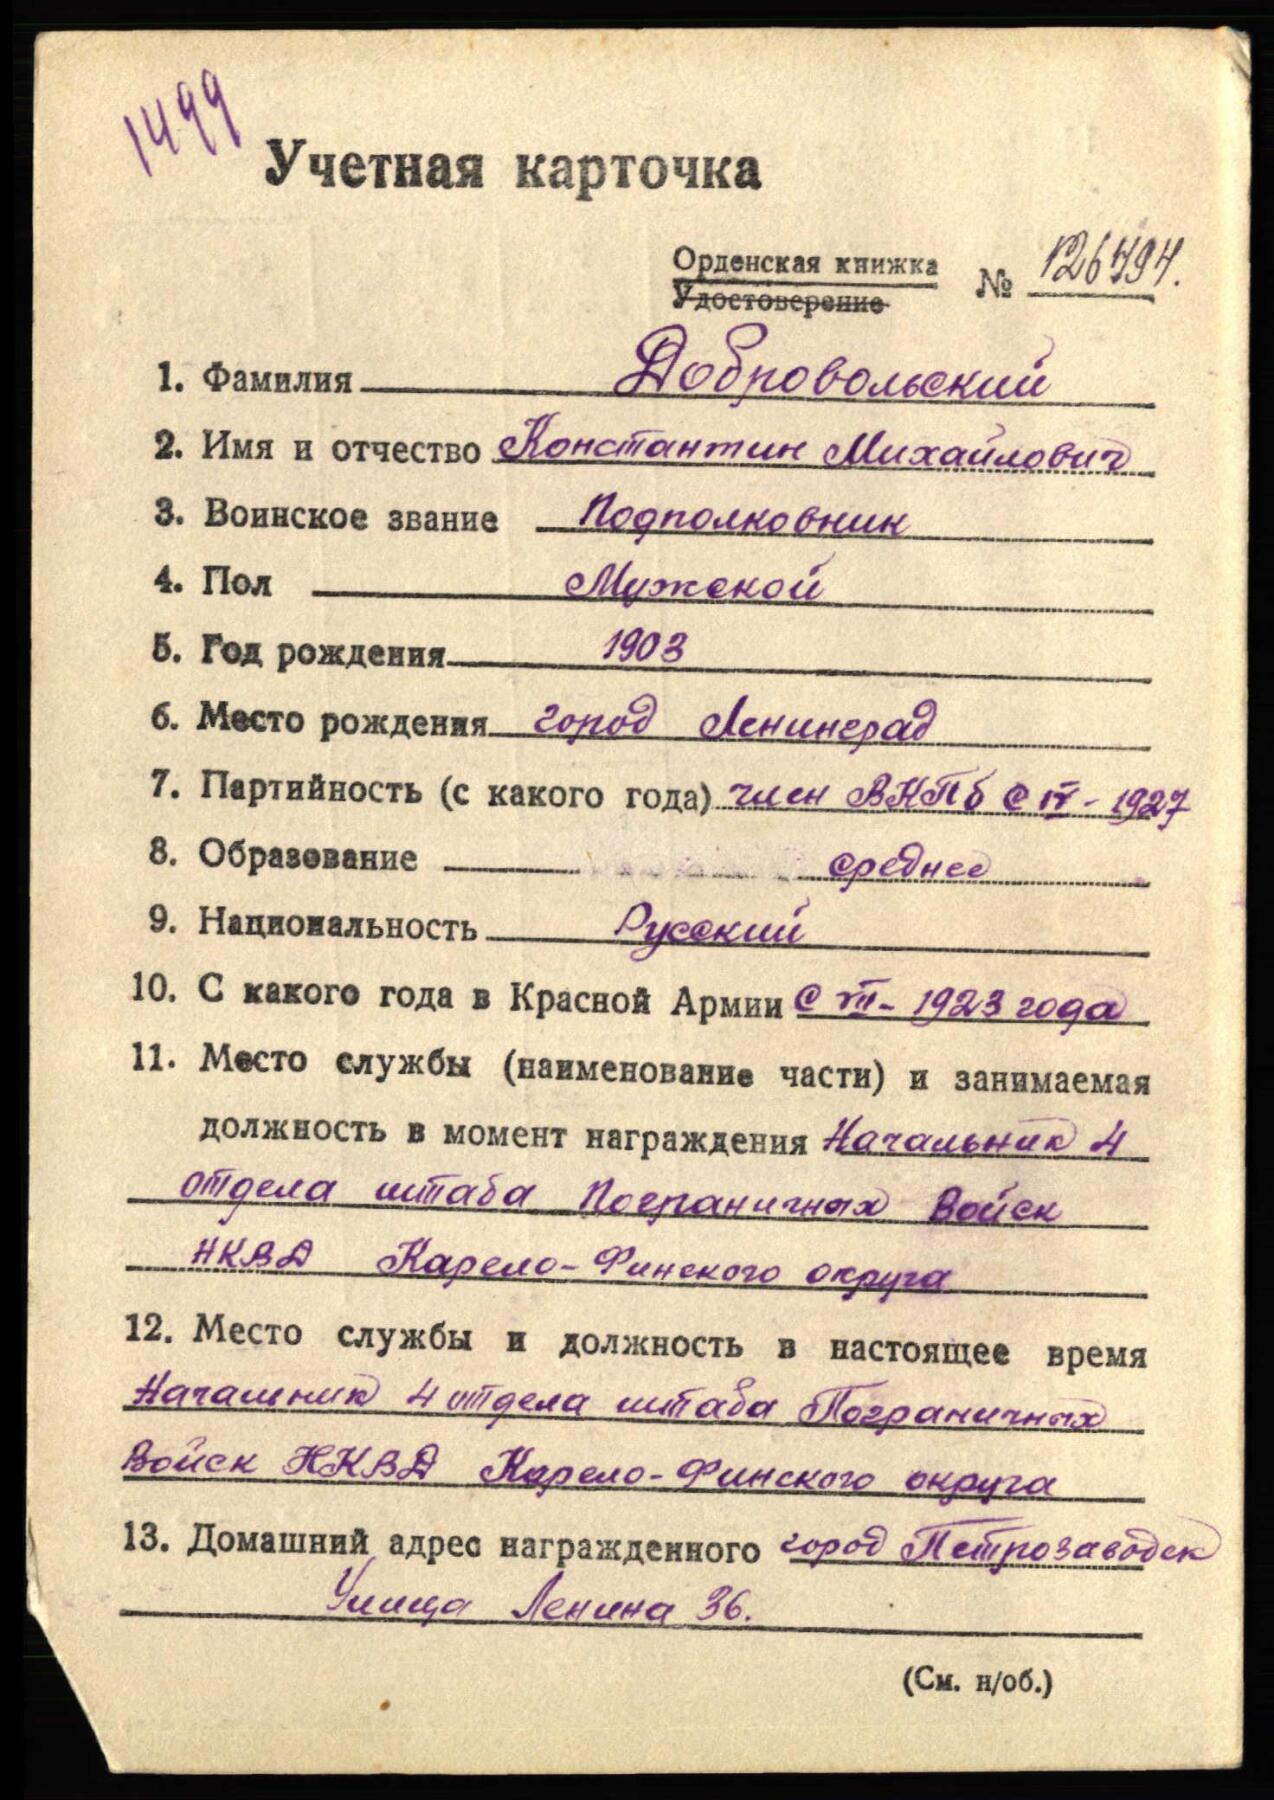 1499
Учетная карточка
Орденская книжка
Удостоверение
№ 126494.
1. Фамилия Добровольский
2. Имя и отчество Константин Михайлович
3. Воинское звание Подполковник
4. Пол Мужской
5. Год рождения 1903
6. Место рождения город Ленинград
7. Партийность (с какого года) член ВКПб с IV - 1927
8. Образование среднее
9. Национальность Русский
10. С какого года в Красной Армии С VII - 1923 года
11. Место службы (наименование части) и занимаемая
должность в момент награждения Начальник 4
отдела штаба Пограничных Войск
НКВД Карело-Финского округа
12. Место службы и должность в настоящее время
Начальник 4 отдела штаба Пограничных
Войск НКВД Карело-Финского округа
13. Домашний адрес награжденного город Петрозаводск
Улица Ленина 36.
(См. н/об.)